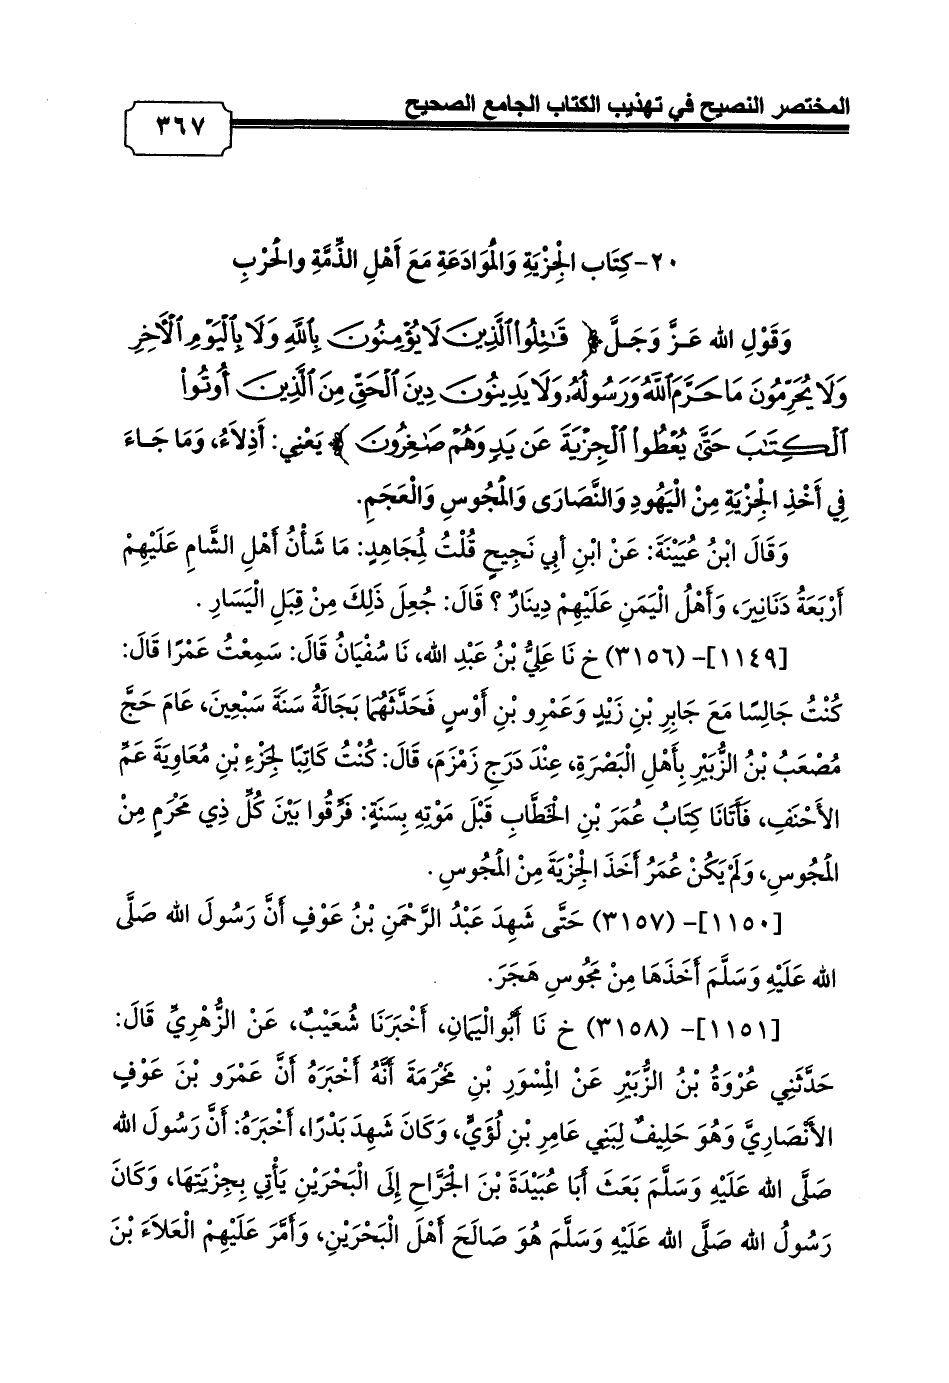 المختصر النصيح في تهذيب الكتاب الجامع الصحيح
٣٦٧
٢٠- كِتَاب الْجِزْيَةِ وَالْمُوَادَعَةِ مَعَ أَهْلِ الذِّمَّةِ والْحَرْبِ
وَقَوْلِ الله عَزَّ وَجَلَّ ﴿ قَٰتِلُوا۟ ٱلَّذِينَ لَا يُؤْمِنُونَ بِٱللَّهِ وَلَا بِٱلْيَوْمِ ٱلْءَاخِرِ
وَلَا يُحَرِّمُونَ مَا حَرَّمَ ٱللَّهُ وَرَسُولُهُۥ وَلَا يَدِينُونَ دِينَ ٱلْحَقِّ مِنَ ٱلَّذِينَ أُوتُوا۟
ٱلْكِتَٰبَ حَتَّىٰ يُعْطُوا۟ ٱلْجِزْيَةَ عَن يَدٍ وَهُمْ صَٰغِرُونَ ﴾ يَعْنِي: أَذِلاَءُ، وَمَا جَاءَ
فِي أَخْذِ الْجِزْيَةِ مِنْ الْيَهُودِ وَالنَّصَارَى وَالْمَجُوسِ وَالْعَجَمِ.
وَقَالَ ابْنُ عُيَيْنَةَ: عَنْ ابْنِ أَبِي نَجِيحٍ قُلْتُ لِمُجَاهِدٍ: مَا شَأْنُ أَهْلِ الشَّامِ عَلَيْهِمْ
أَرْبَعَةُ دَنَانِيرَ، وَأَهْلُ الْيَمَنِ عَلَيْهِمْ دِينَارٌ ؟ قَالَ: جُعِلَ ذَلِكَ مِنْ قِبَلِ الْيَسَارِ .
[١١٤٩]- (٣١٥٦) خ نَا عَلِيُّ بْنُ عَبْدِ الله، نَا سُفْيَانُ قَالَ: سَمِعْتُ عَمْرًا قَالَ:
كُنْتُ جَالِسًا مَعَ جَابِرِ بْنِ زَيْدٍ وَعَمْرِو بْنِ أَوْسٍ فَحَدَّثَهُمَا بَجَالَةُ سَنَةَ سَبْعِينَ، عَامَ حَجَّ
مُصْعَبُ بْنُ الزُّبَيْرِ بِأَهْلِ الْبَصْرَةِ، عِنْدَ دَرَجِ زَمْزَمَ، قَالَ: كُنْتُ كَاتِبًا لِجَزْءِ بْنِ مُعَاوِيَةَ عَمِّ
الأَحْنَفِ، فَأَتَانَا كِتَابُ عُمَرَ بْنِ الْخَطَّابِ قَبْلَ مَوْتِهِ بِسَنَةٍ: فَرِّقُوا بَيْنَ كُلِّ ذِي مَحْرَمٍ مِنْ
الْمَجُوسِ، وَلَمْ يَكُنْ عُمَرُ أَخَذَ الْجِزْيَةَ مِنْ الْمَجُوسِ .
[١١٥٠]- (٣١٥٧) حَتَّى شَهِدَ عَبْدُ الرَّحْمَنِ بْنُ عَوْفٍ أَنَّ رَسُولَ الله صَلَّى
الله عَلَيْهِ وَسَلَّمَ أَخَذَهَا مِنْ مَجُوسِ هَجَرَ.
[١١٥١]- (٣١٥٨) خ نَا أَبُوالْيَمَانِ، أَخْبَرَنَا شُعَيْبٌ، عَنْ الزُّهْرِيِّ قَالَ:
حَدَّثَنِي عُرْوَةُ بْنُ الزُّبَيْرِ عَنْ الْمِسْوَرِ بْنِ مَخْرَمَةَ أَنَّهُ أَخْبَرَهُ أَنَّ عَمْرَو بْنَ عَوْفٍ
الأَنْصَارِيَّ وَهُوَ حَلِيفٌ لِبَنِي عَامِرِ بْنِ لُؤَيٍّ، وَكَانَ شَهِدَ بَدْرًا، أَخْبَرَهُ: أَنَّ رَسُولَ الله
صَلَّى الله عَلَيْهِ وَسَلَّمَ بَعَثَ أَبَا عُبَيْدَةَ بْنَ الْجَرَّاحِ إِلَى الْبَحْرَيْنِ يَأْتِي بِجِزْيَتِهَا، وَكَانَ
رَسُولُ الله صَلَّى الله عَلَيْهِ وَسَلَّمَ هُوَ صَالَحَ أَهْلَ الْبَحْرَيْنِ، وَأَمَّرَ عَلَيْهِمْ الْعَلاَءَ بْنَ